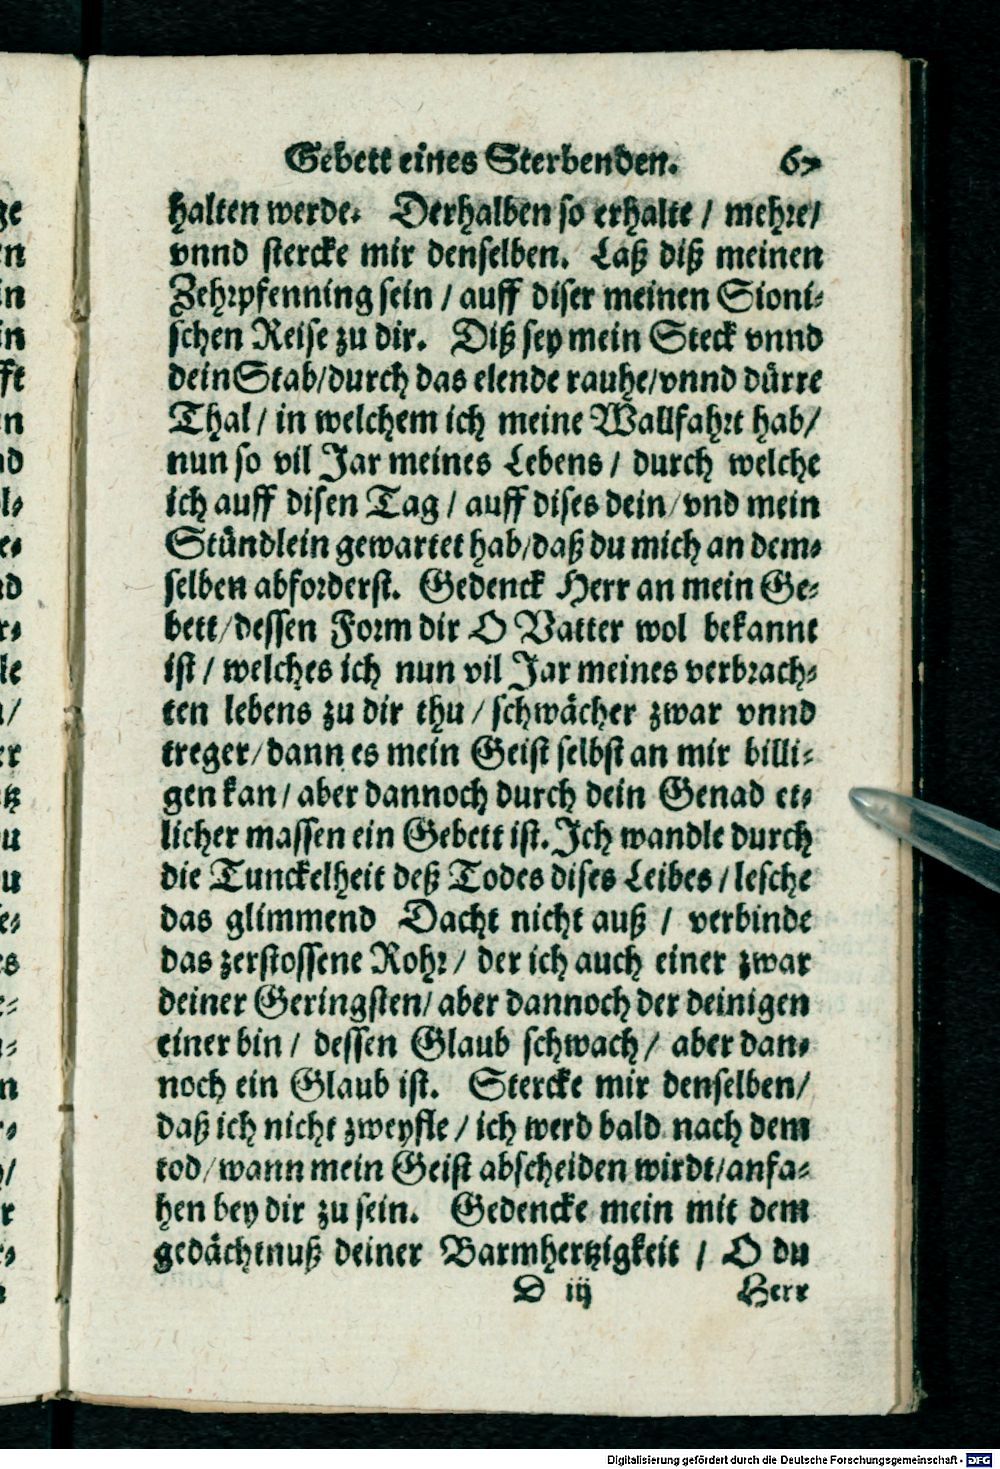 Gebett eines Sterbenden. 67
halten werde. Derhalben so erhalte / mehre/
vnnd stercke mir denselben. Laß diß meinen
Zehrpfenning sein / auff diser meinen Sioni-
schen Reise zu dir. Diß sey mein Steck vnnd
dein Stab/durch das elende rauhe/vnnd dürre
Thal / in welchem ich meine Wallfahrt hab/
nun so vil Jar meines Lebens / durch welche
ich auff disen Tag / auff dises dein/vnd mein
Stündlein gewartet hab/daß du mich an dem-
selben abforderst. Gedenck Herr an mein Ge-
bett/dessen Form dir O Vatter wol bekannt
ist / welches ich nun vil Jar meines verbrach-
ten lebens zu dir thu / schwächer zwar vnnd
treger/dann es mein Geist selbst an mir billi-
gen kan / aber dannoch durch dein Genad et-
licher massen ein Gebett ist. Ich wandle durch
die Tunckelheit deß Todes dises Leibes / lesche
das glimmend Dacht nicht auß / verbinde
das zerstossene Rohr / der ich auch einer zwar
deiner Geringsten/ aber dannoch der deinigen
einer bin / dessen Glaub schwach / aber dan-
noch ein Glaub ist. Stercke mir denselben/
daß ich nicht zweyfle / ich werd bald nach dem
tod/wann mein Geist abscheiden wirdt/anfa-
hen bey dir zu sein. Gedencke mein mit dem
gedächtnuß deiner Barmhertzigkeit / O du
D iij Herr
Digitalisierung gefördert durch die Deutsche Forschungsgemeinschaft - DFG